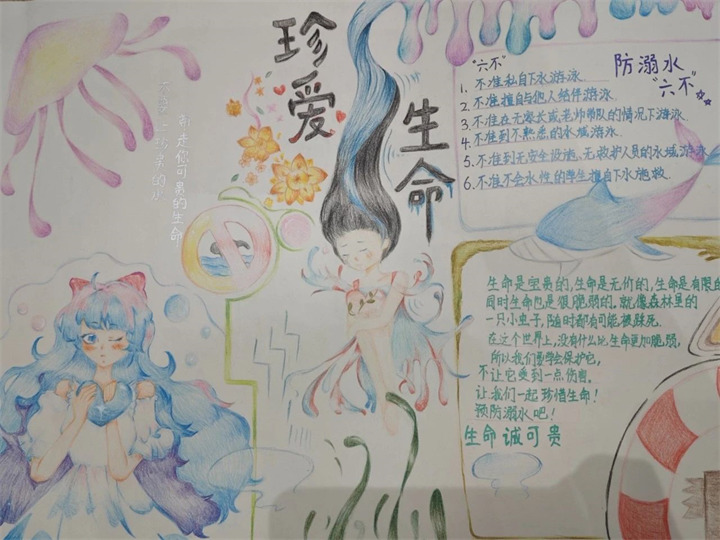 珍爱
生命
防溺水
"六不"
"六不"
1. 不准私自下水游泳.
2. 不准擅自与他人结伴游泳.
3. 不准在无家长或老师带队的情况下游泳
4. 不准到不熟悉的水域游泳.
5. 不准到无安全设施、无救护人员的水域游泳
6. 不准不会水性的学生擅自下水施救.
走你可贵的生命
生命是宝贵的,生命是无价的,生命是有限的
同时生命也是很脆弱的.就像森林里的
一只小虫子,随时都有可能被踩死.
在这个世界上,没有什么比生命更加脆弱,
所以我们要学会保护它,
不让它受到一点伤害.
让我们一起珍惜生命!
预防溺水吧!
生命诚可贵